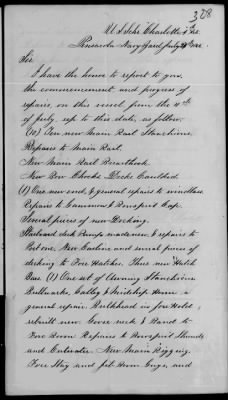 308
U.S. Schr. Charlotte
Pensacola Navy Yard July
Sir
I have the honor to report to you,
the commencement and progress of
repairs, on this vessel from the
of July, up to this date, as follow,
Ten new Main Rail Stanchions.
Repairs to Main Rail.
New Main Rail Breasthook.
New Bow Chocks Decks Caulked.
(1) One new end, & general repairs to windlass
Repairs to Cummins & Bowsprit Cap.
Several pieces of new Decking.
Starboard deck Pump made new & repairs to
Port one, New Coaming and several pieces of
decking to Fore Hatches. Three new Hatch
Bars (1) One set of Awning Stanchions
Bulwarks, Galley & Midship House a
general repair. Bulkhead in fore Hold
rebuilt new. Goose neck & Band to
Fore Boom Repairs to Bowsprit Shrouds
and Cutwater. New Main Rigging.
Fore Stay and jib Boom Guys, and